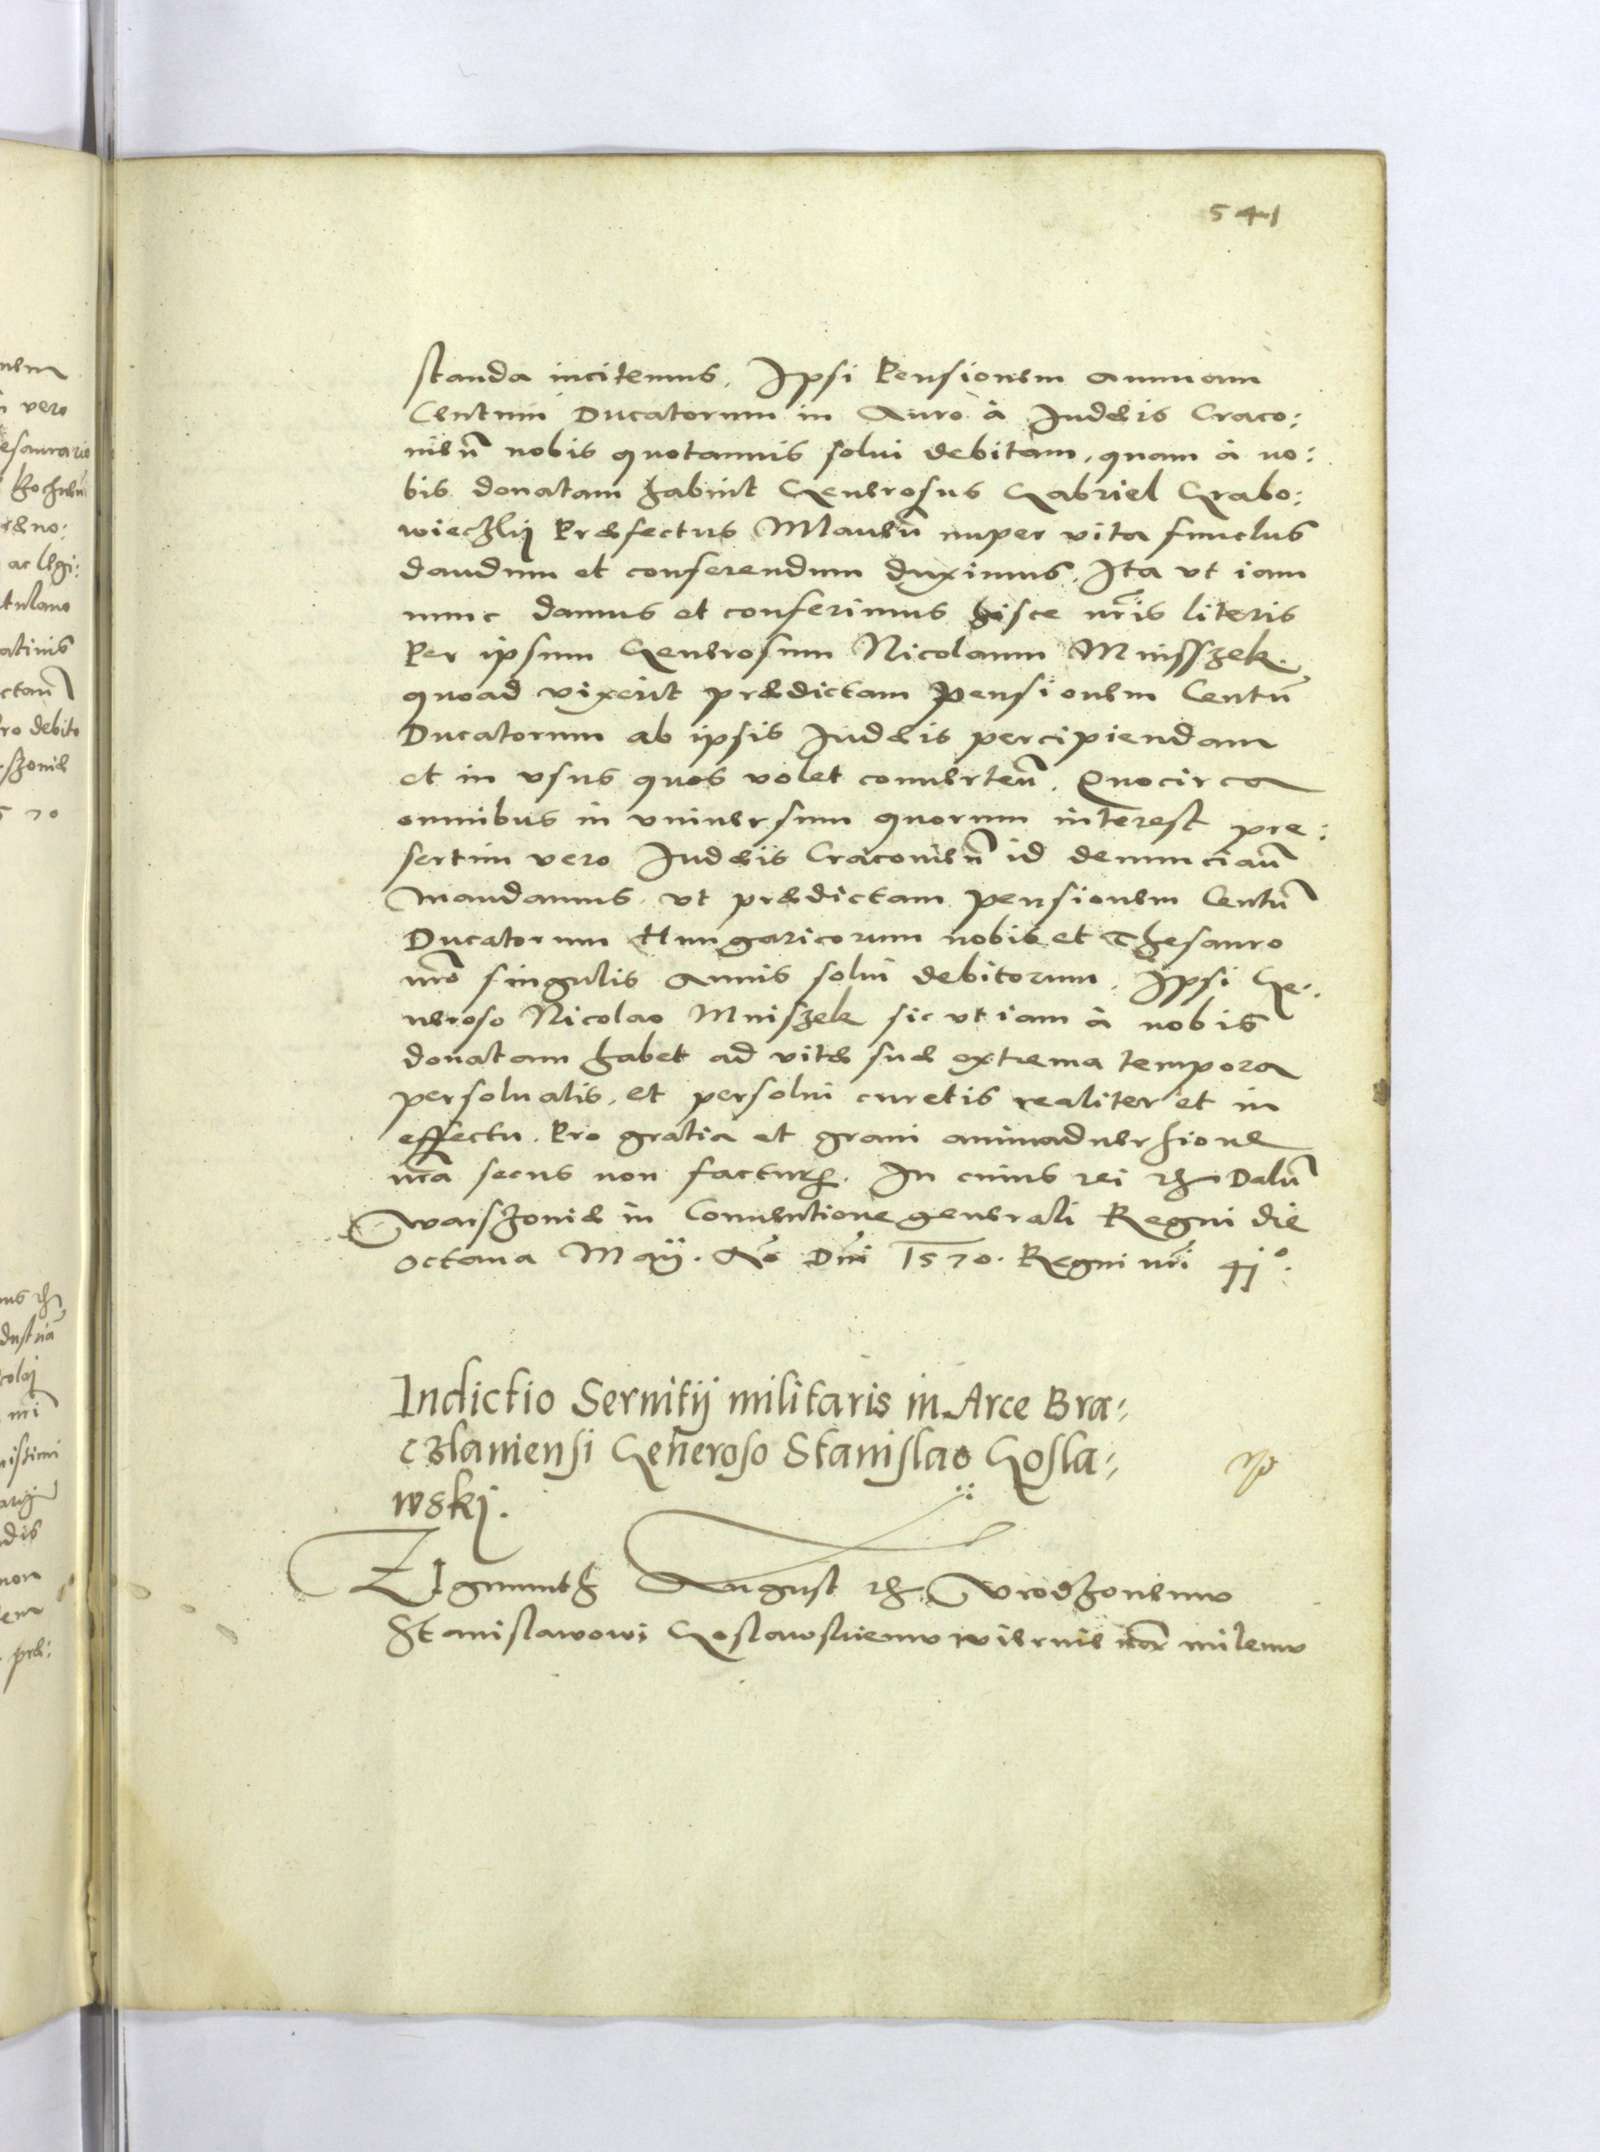 541
standa incitemus. Ipsi Pensionem annuam
Centum Ducatorum in Auro à Iudæis Craco:
nieñ nobis quotannis solui debitam, quam à no:
bis donatam habuit Generosus Gabriel Grabo:
wieczkij Præfectus Maneñ nuper vita functus
dandum et conferendum duximus. Ita vt iam
nunc damus et conferimus hisce nr̃is literis
Per ipsum Generosum Nicolaum Mnisszek.
quoad vixerit prædictam Pensionem Centũ
Ducatorum ab ipsis Iudæis percipiendam
et in vsus quos volet conuerteñ. Quocirca
omnibus in vniuersum quorum interest præ:
sertim vero Iudæis Cracouieñ id denunciañ
mandamus. vt prædictam pensionem Centũ
Ducatorum Hungaricorum nobis et Thesauro
nr̃o singulis annis solui debitorum. Ipsi Ge:
neroso Nicolao Mniszek sic vt iam à nobis
donatam habet ad vitæ suæ extrema tempora
persoluatis, et persolui curetis realiter et in
effectu. Pro gratia et graui animaduersione
nr̃a secus non factur. In cuius rei etc Datũ
Warszouiæ in Conuentione generali Regni die
octaua Maij. Aõ Dñi 1570. Regni nr̃i 41°.
Indictio Seruitij militaris in Arce Bra:
czlauiensi Generoso Stanislao Gosla:
wskj.
ZIgmunth August etc Vrodzonemv
Stanislawowi Goslawskiemv wiernie nam milemv